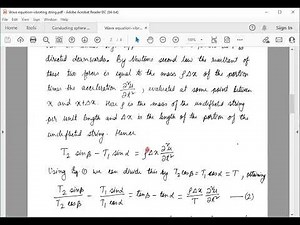 Wave equation-vibrating string.pdf - Adobe Acrobat Reader DC (64-bit)
directed downwards. By Newtons second law the resultant of
these two forces is equal to the mass ρΔx of the portion
times the acceleration ∂²u/∂t², evaluated at some point between
x and x+Δx. Here ρ is the mass of the undeflected string
per unit length and Δx is the length of the portion of the
undeflected string. Hence
T₂ sinβ − T₁ sinα = ρΔx ∂²u/∂t²
Using Eq. ① we can divide this by T₂cosβ = T₁cosα = T, obtaining
T₂ sinβ / T₂ cosβ − T₁ sinα / T₁ cosα = tanβ − tanα = ρΔx/T ∂²u/∂t² — (2)